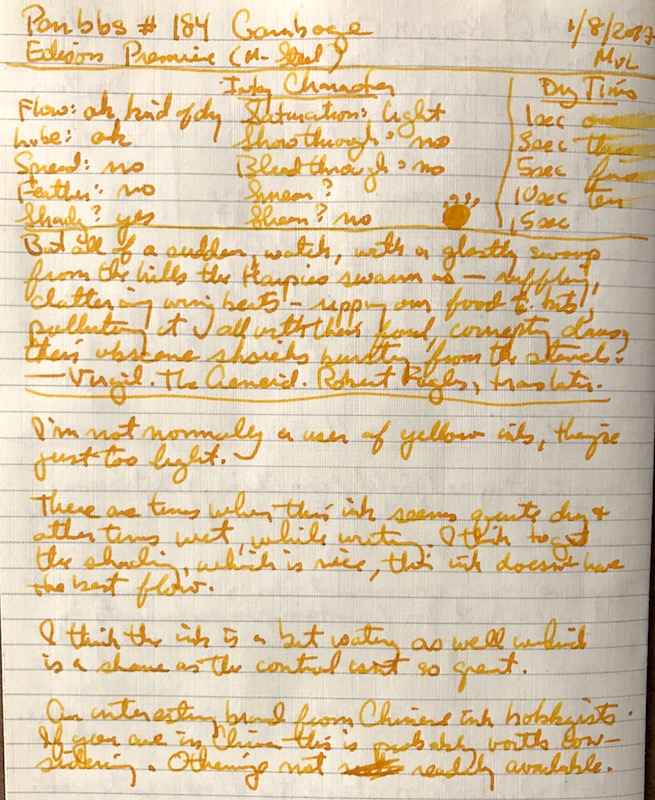 Penbbs # 184 Gamboge 1/8/2017
Edison Premiere (M-Steel) MvL
Inky Character Dry Time
Flow: ok, kind of dry Saturation: light 1sec one
Lube: ok Showthrough: no 3sec three
Spread: no Bleedthrough: no 5sec five
Feather: no Smear? 10sec ten
Shady? yes Sheen? no 15sec
But all of a sudden, watch, with a ghastly swoop
from the hills the Harpies swarm us — ruffling,
clattering wingbeats — ripping our food to bits,
polluting it all with their foul, corrupting claws,
their obscene shrieks bursting from the stench.
— Virgil. The Aeneid. Robert Fagles, translator.
I'm not normally a user of yellow inks, they're
just too light.
There are times when this ink seems quite dry &
other times wet, while writing. I think to get
the shading, which is nice, this ink doesn't have
the best flow.
I think the ink is a bit watery as well which
is a shame as the control isn't so great.
An interesting brand from Chinese ink hobbyists.
If you are in China this is probably worth con-
sidering. Otherwise not readily available.